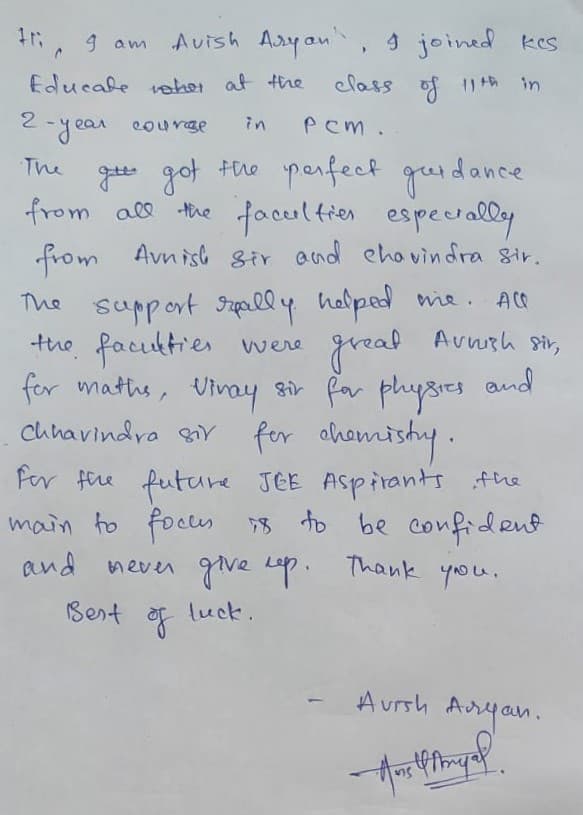 Hi, I am Avish Aryan, I joined KCS
Educate at the class of 11th in
2-year course in PCM.
The got the perfect guidance
from all the faculties especially
from Avnish sir and chavindra sir.
The support really helped me. All
the faculties were great Avnish sir,
for maths, Vinay sir for physics and
Chhavindra sir for chemistry.
For the future JEE Aspirants the
main to focus is to be confident
and never give up. Thank you.
Best of luck.
- Avish Aryan.